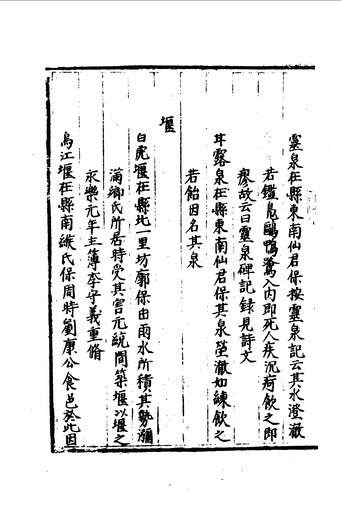 靈泉在縣東南仙君保按靈泉記云其水澄澈
若鑑鳬鷗鴨鷺入内即死人疾沉痾飲之即
瘳故云曰靈泉碑記録見詩文
甘露泉在縣東南仙君保其泉瑩澈如練飲之
若飴因名其泉
堰
白虎堰在縣北一里坊廓保由雨水所積其勢瀰
滿鄉氏所居時受其害元統間築堰以堰之
永樂元年主簿李守義重脩
烏江堰在縣南緱氏保周時劉康公食邑於此因